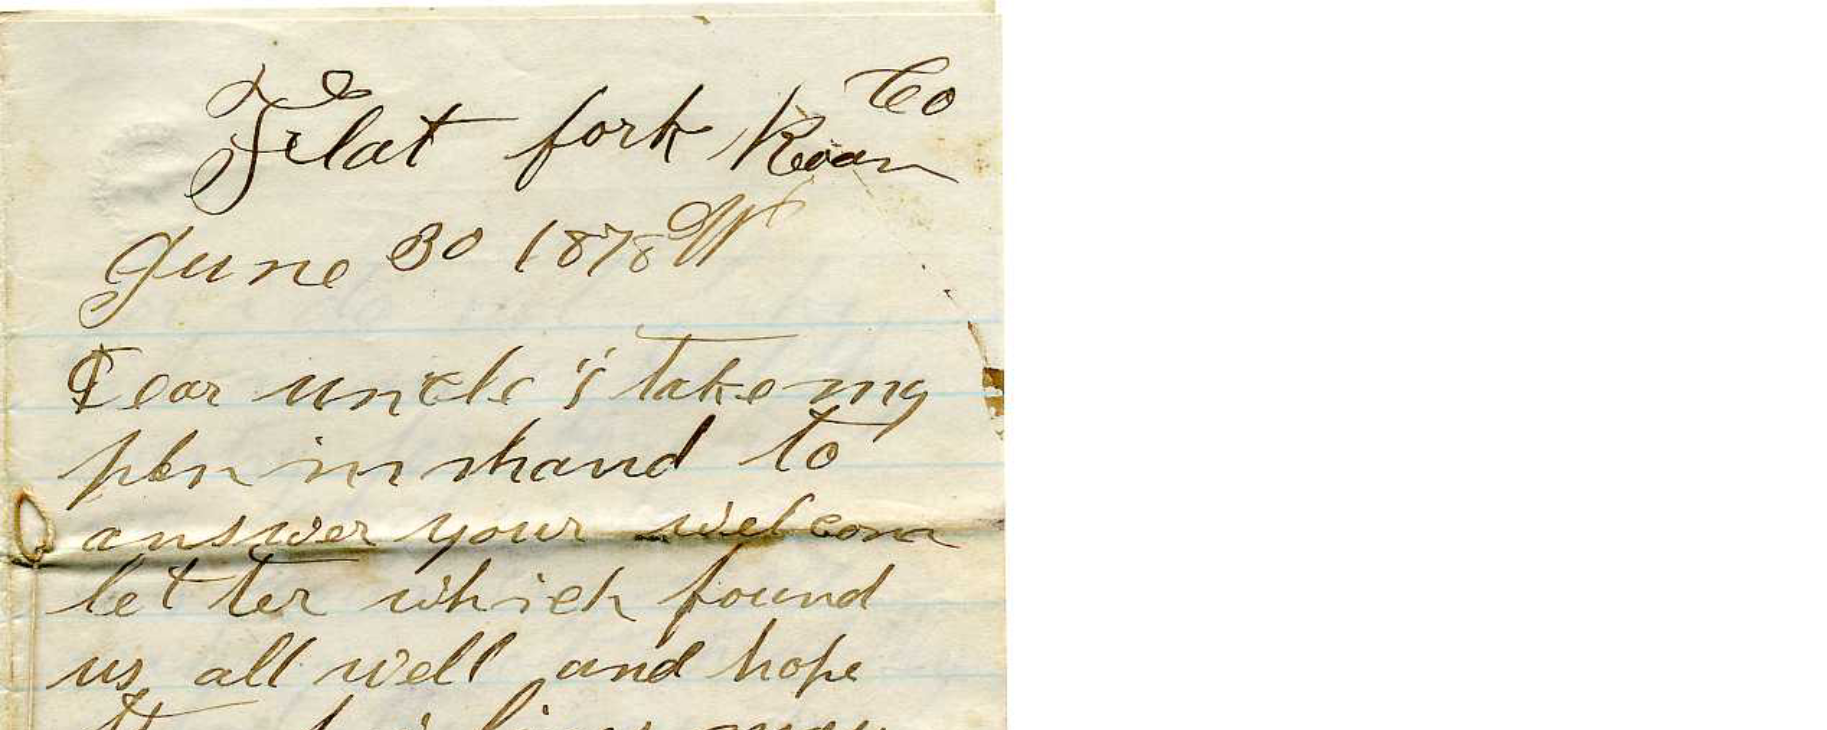 Flat fork Roan Co
June 30 1878 W
Dear uncle i take my
pen in hand to
answer your welcom
letter which found
us all well and hope